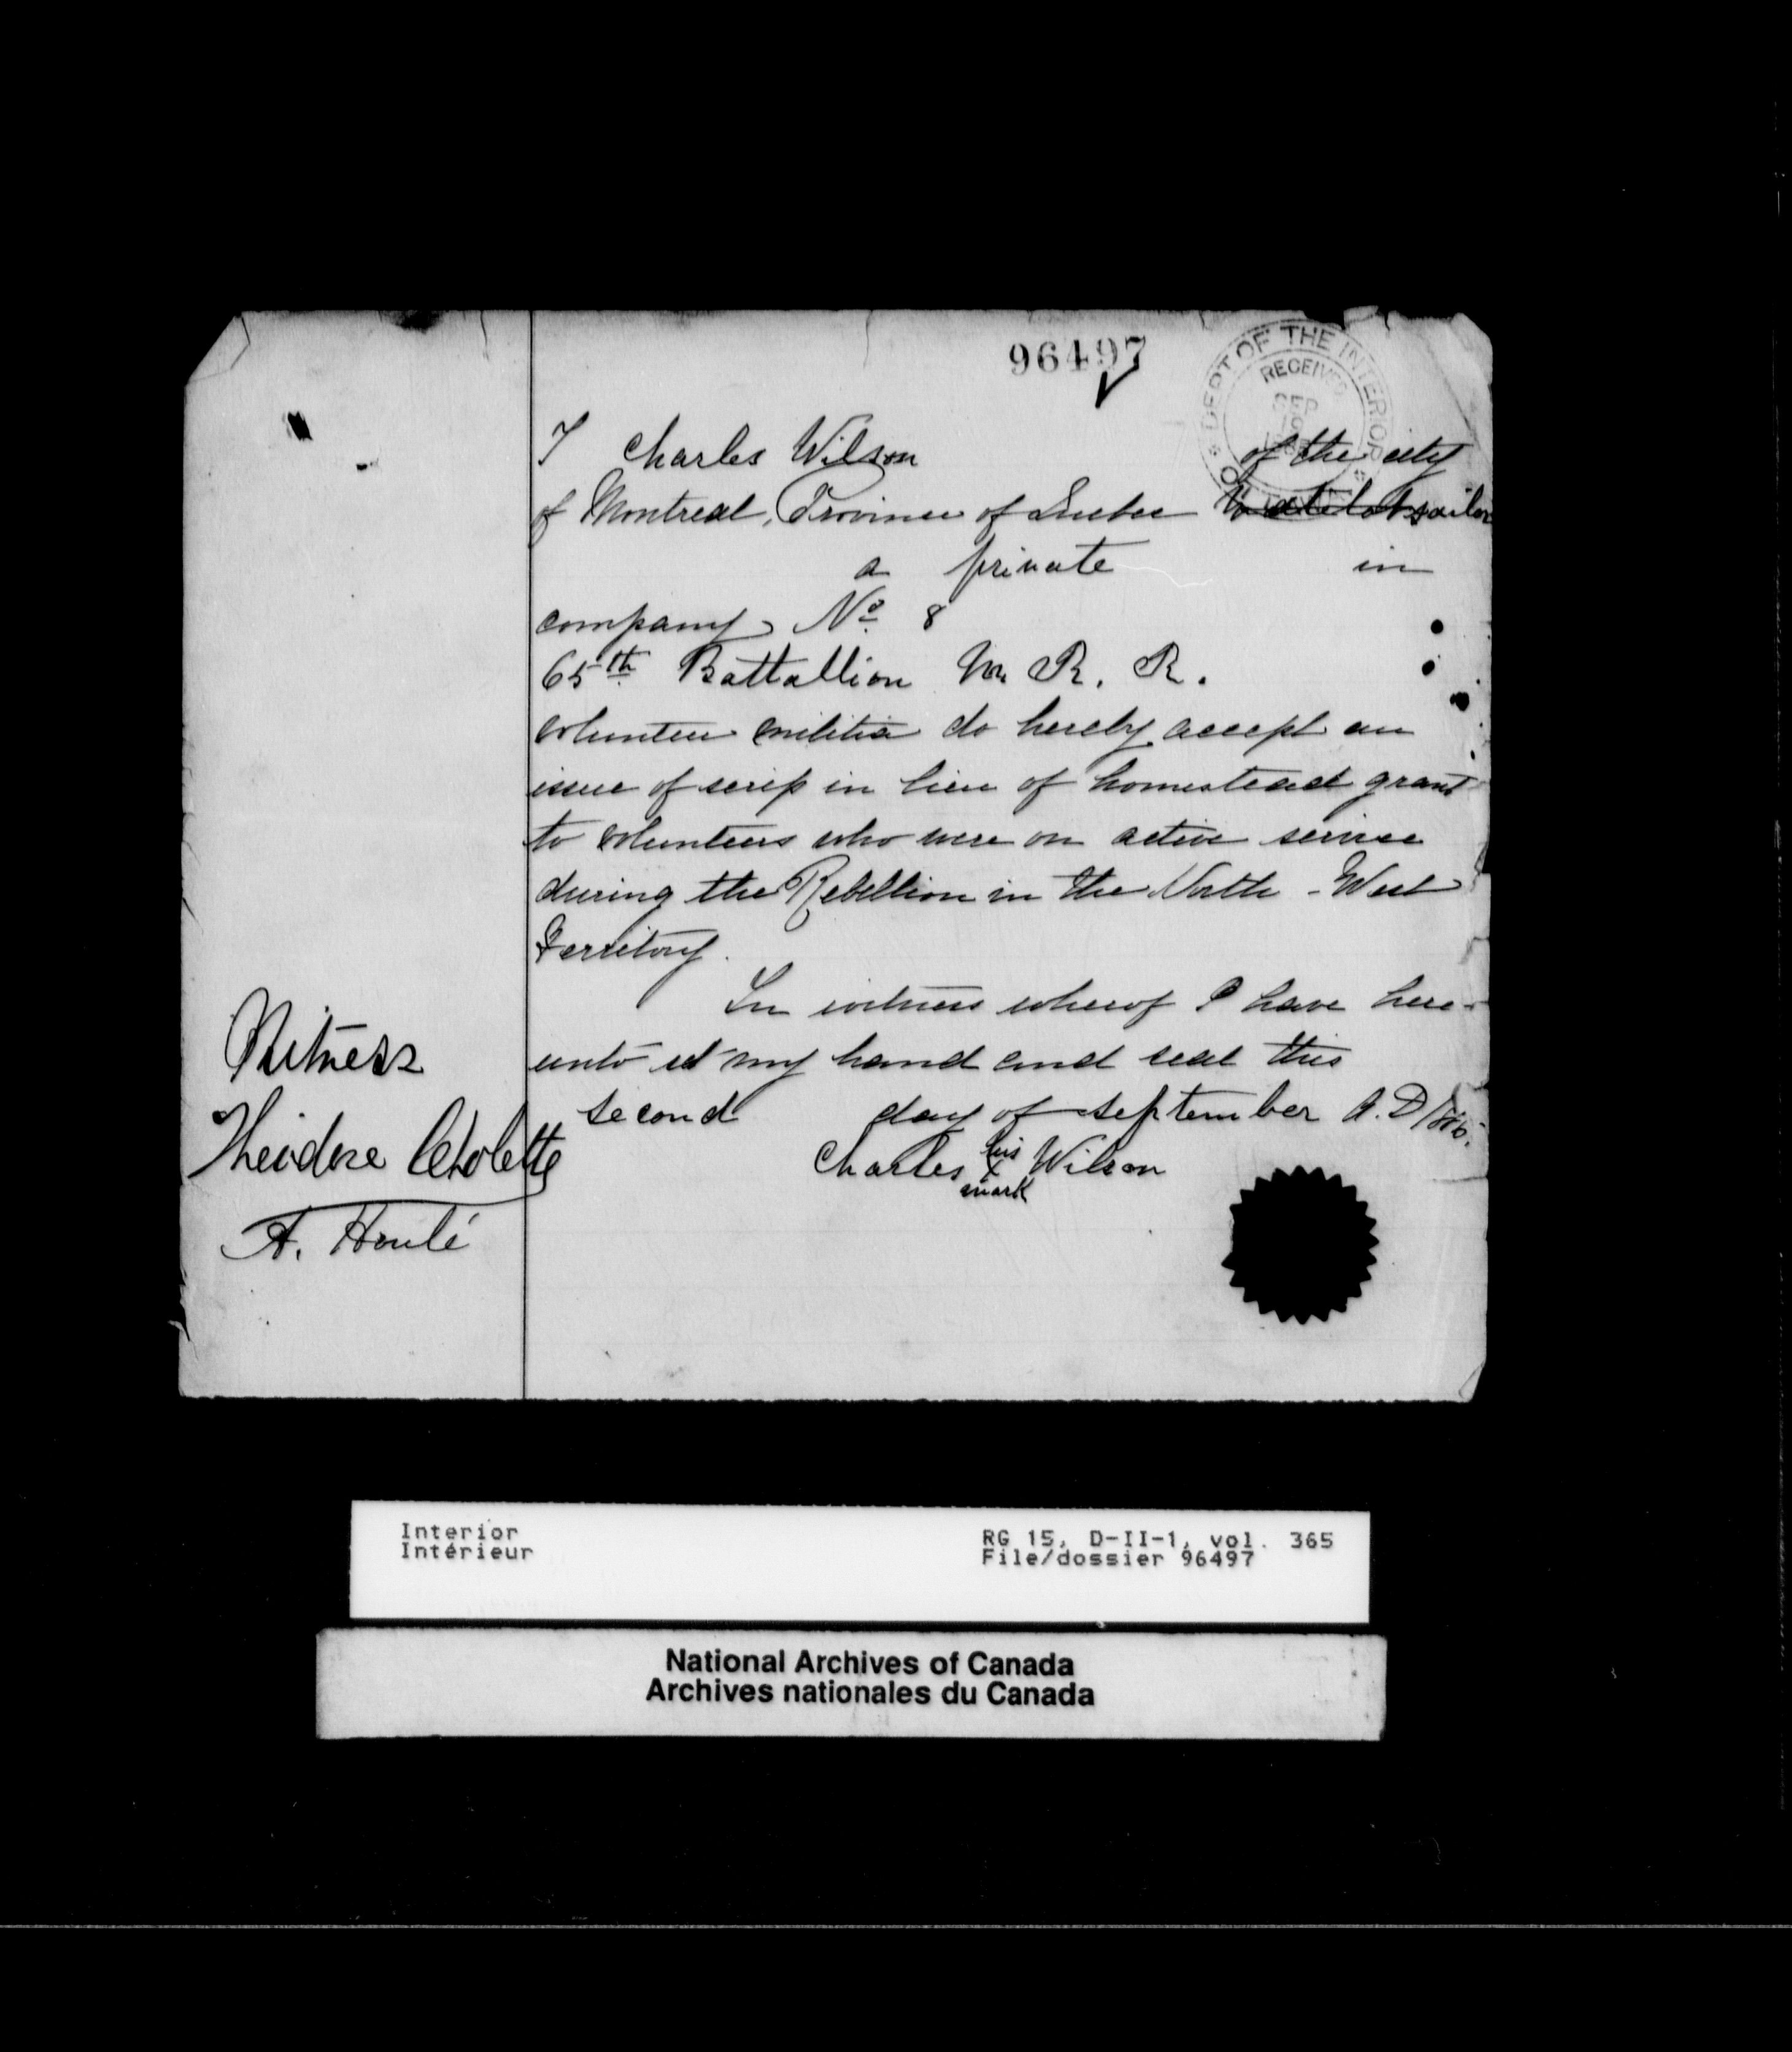 96497
DEPT OF THE INTERIOR
RECEIVED
SEP
I Charles Wilson of the city
of Montreal, Province of Quebec Matelot sailor
a private in
company No. 8
65th Battallion M. R. R.
volunteer militia do hereby accept an
issue of scrip in lieu of homestead grant
to volunteers who were on active service
during the Rebellion in the North - West
Territory.
In witness wherof I have here-
unto set my hand and seal this
second day of september A. D
Charles his X mark Wilson
Witness
Theodore
A. Houlé
Interior
Intérieur
RG 15, D-II-1, vol. 365
File/dossier 96497
National Archives of Canada
Archives nationales du Canada